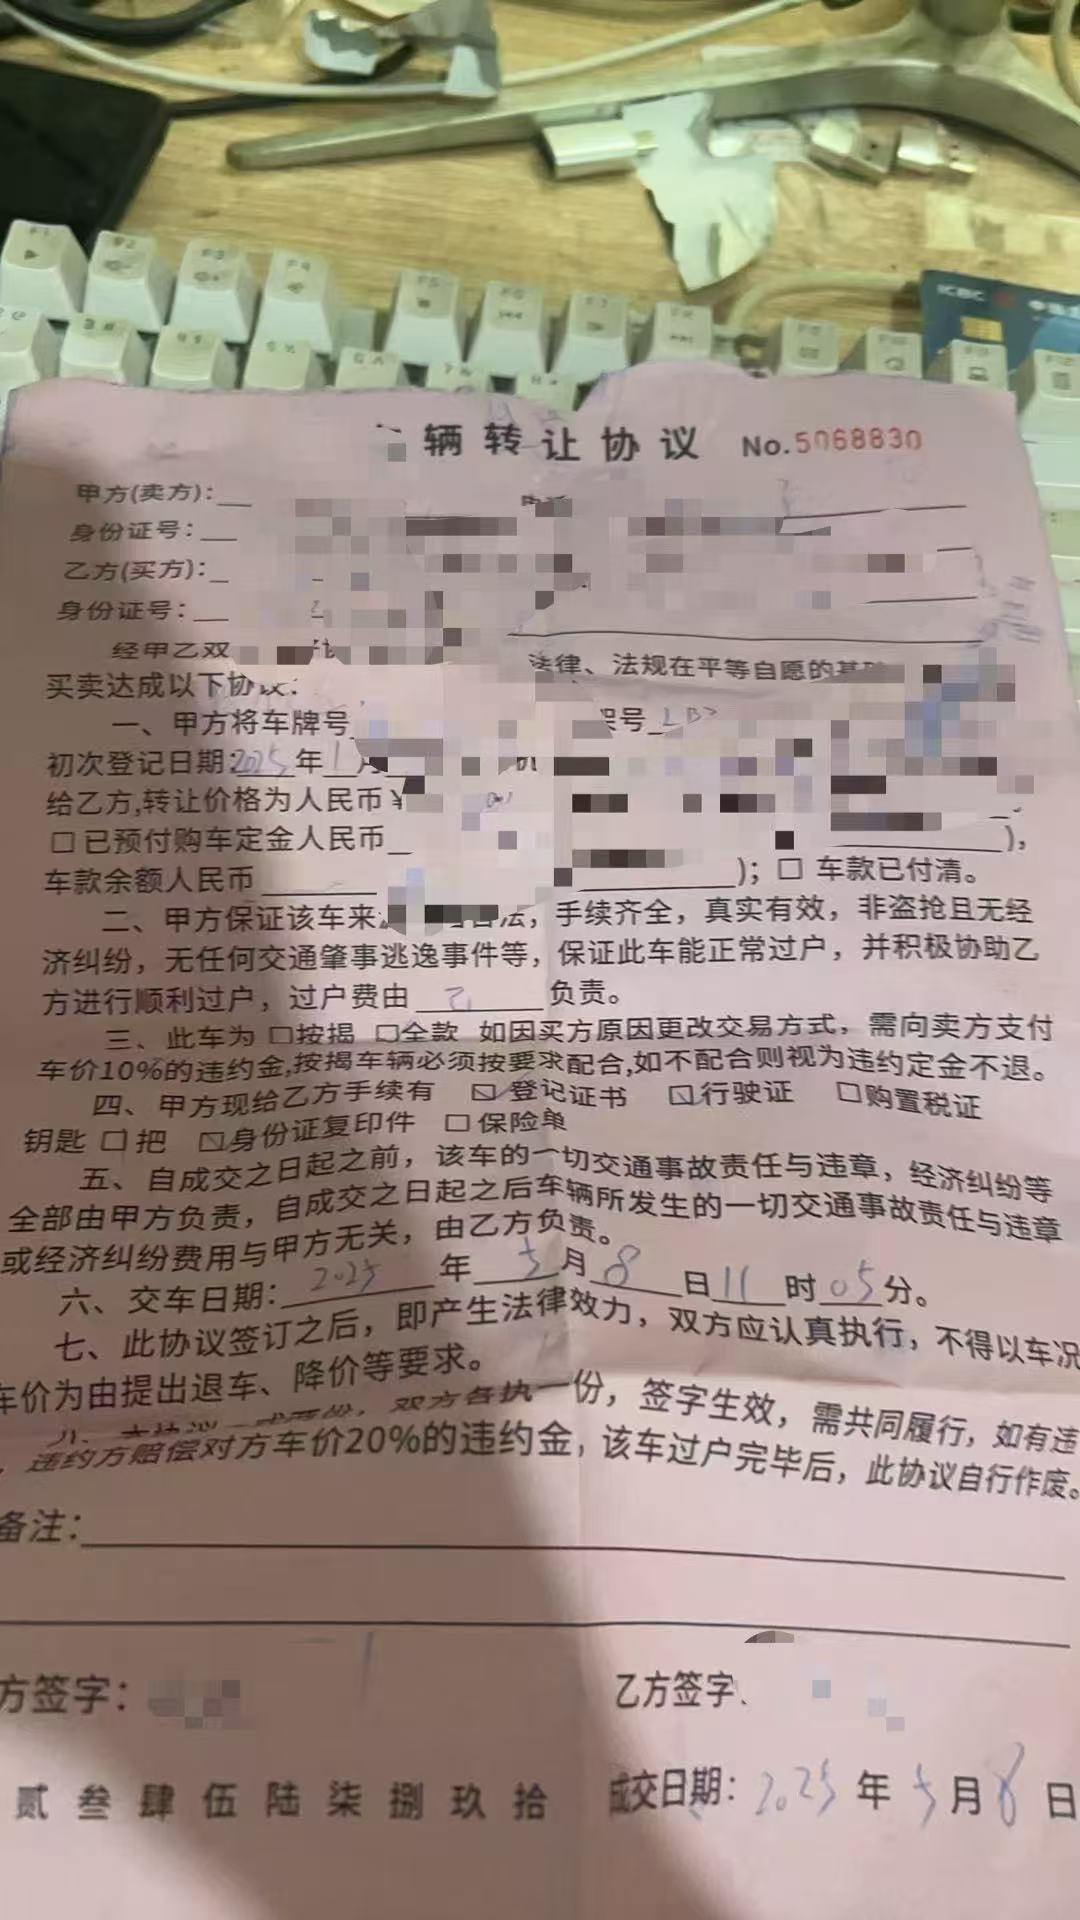 F1 F2 F3 F4 F5 F6 F7
ICBC
辆转让协议 No.5068830
甲方(卖方):
身份证号:
乙方(买方):
身份证号:
经甲乙双 法律、法规在平等自愿的基础
买卖达成以下协议:
一、甲方将车牌号 架号 LB
初次登记日期:2025年1月
给乙方,转让价格为人民币¥
□已预付购车定金人民币 ),
车款余额人民币 ); □ 车款已付清。
二、甲方保证该车来 合法,手续齐全,真实有效,非盗抢且无经
济纠纷,无任何交通肇事逃逸事件等,保证此车能正常过户,并积极协助乙
方进行顺利过户,过户费由 乙 负责。
三、此车为 □按揭 □全款 如因买方原因更改交易方式,需向卖方支付
车价10%的违约金,按揭车辆必须按要求配合,如不配合则视为违约定金不退。
四、甲方现给乙方手续有 ☑登记证书 ☑行驶证 □购置税证
钥匙 □ 把 ☑身份证复印件 □保险单
五、自成交之日起之前,该车的一切交通事故责任与违章,经济纠纷等
全部由甲方负责,自成交之日起之后车辆所发生的一切交通事故责任与违章
或经济纠纷费用与甲方无关,由乙方负责。
六、交车日期: 2025 年 5 月 8 日 11 时 05 分。
七、此协议签订之后,即产生法律效力,双方应认真执行,不得以车况
车价为由提出退车、降价等要求。
八、本协议一式两份,双方各执一份,签字生效,需共同履行,如有违
,违约方赔偿对方车价20%的违约金,该车过户完毕后,此协议自行作废。
备注:
方签字: 乙方签字
贰叁肆伍陆柒捌玖拾 成交日期: 2025 年 5 月 8 日